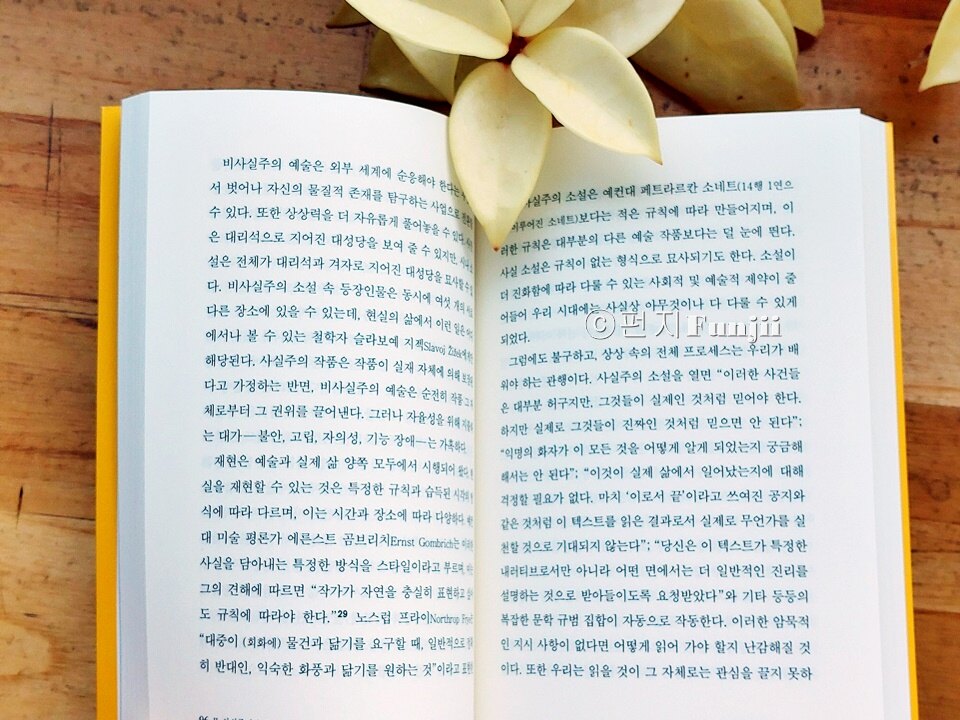 비사실주의 예술은 외부 세계에 순응해야 한다는
서 벗어나 자신의 물질적 존재를 탐구하는 사업으로
수 있다. 또한 상상력을 더 자유롭게 풀어놓을 수 있다.
은 대리석으로 지어진 대성당을 보여 줄 수 있지만,
설은 전체가 대리석과 겨자로 지어진 대성당을 묘사할 수
다. 비사실주의 소설 속 등장인물은 동시에 여섯 개의
다른 장소에 있을 수 있는데, 현실의 삶에서 이런 일은
에서나 볼 수 있는 철학자 슬라보예 지젝Slavoj Žižek에
해당된다. 사실주의 작품은 작품이 실재 자체에 의해
다고 가정하는 반면, 비사실주의 예술은 순전히 작품 그
체로부터 그 권위를 끌어낸다. 그러나 자율성을 위해
는 대가—불안, 고립, 자의성, 기능 장애—는 가혹하다.
재현은 예술과 실제 삶 양쪽 모두에서 시행되어 왔다.
실을 재현할 수 있는 것은 특정한 규칙과 습득된 시각의
식에 따라 다르며, 이는 시간과 장소에 따라 다양하다.
대 미술 평론가 에른스트 곰브리치Ernst Gombrich는
사실을 담아내는 특정한 방식을 스타일이라고 부르며,
그의 견해에 따르면 “작가가 자연을 충실히 표현하고
도 규칙에 따라야 한다.”29 노스럽 프라이Northrop Frye
“대중이 (회화에) 물건과 닮기를 요구할 때, 일반적으로
히 반대인, 익숙한 화풍과 닮기를 원하는 것”이라고
96
사실주의 소설은 예컨대 페트라르칸 소네트(14행 1연으
이루어진 소네트)보다는 적은 규칙에 따라 만들어지며, 이
러한 규칙은 대부분의 다른 예술 작품보다는 덜 눈에 띈다.
사실 소설은 규칙이 없는 형식으로 묘사되기도 한다. 소설이
더 진화함에 따라 다룰 수 있는 사회적 및 예술적 제약이 줄
어들어 우리 시대에는 사실상 아무것이나 다 다룰 수 있게
되었다.
©펀지Funjii
그럼에도 불구하고, 상상 속의 전체 프로세스는 우리가 배
워야 하는 관행이다. 사실주의 소설을 열면 “이러한 사건들
은 대부분 허구지만, 그것들이 실제인 것처럼 믿어야 한다.
하지만 실제로 그것들이 진짜인 것처럼 믿으면 안 된다”;
“익명의 화자가 이 모든 것을 어떻게 알게 되었는지 궁금해
해서는 안 된다”; “이것이 실제 삶에서 일어났는지에 대해
걱정할 필요가 없다. 마치 ‘이로서 끝’이라고 쓰여진 공지와
같은 것처럼 이 텍스트를 읽은 결과로서 실제로 무언가를 실
천할 것으로 기대되지 않는다”; “당신은 이 텍스트가 특정한
내러티브로서만 아니라 어떤 면에서는 더 일반적인 진리를
설명하는 것으로 받아들이도록 요청받았다”와 기타 등등의
복잡한 문학 규범 집합이 자동으로 작동한다. 이러한 암묵적
인 지시 사항이 없다면 어떻게 읽어 가야 할지 난감해질 것
이다. 또한 우리는 읽을 것이 그 자체로는 관심을 끌지 못하